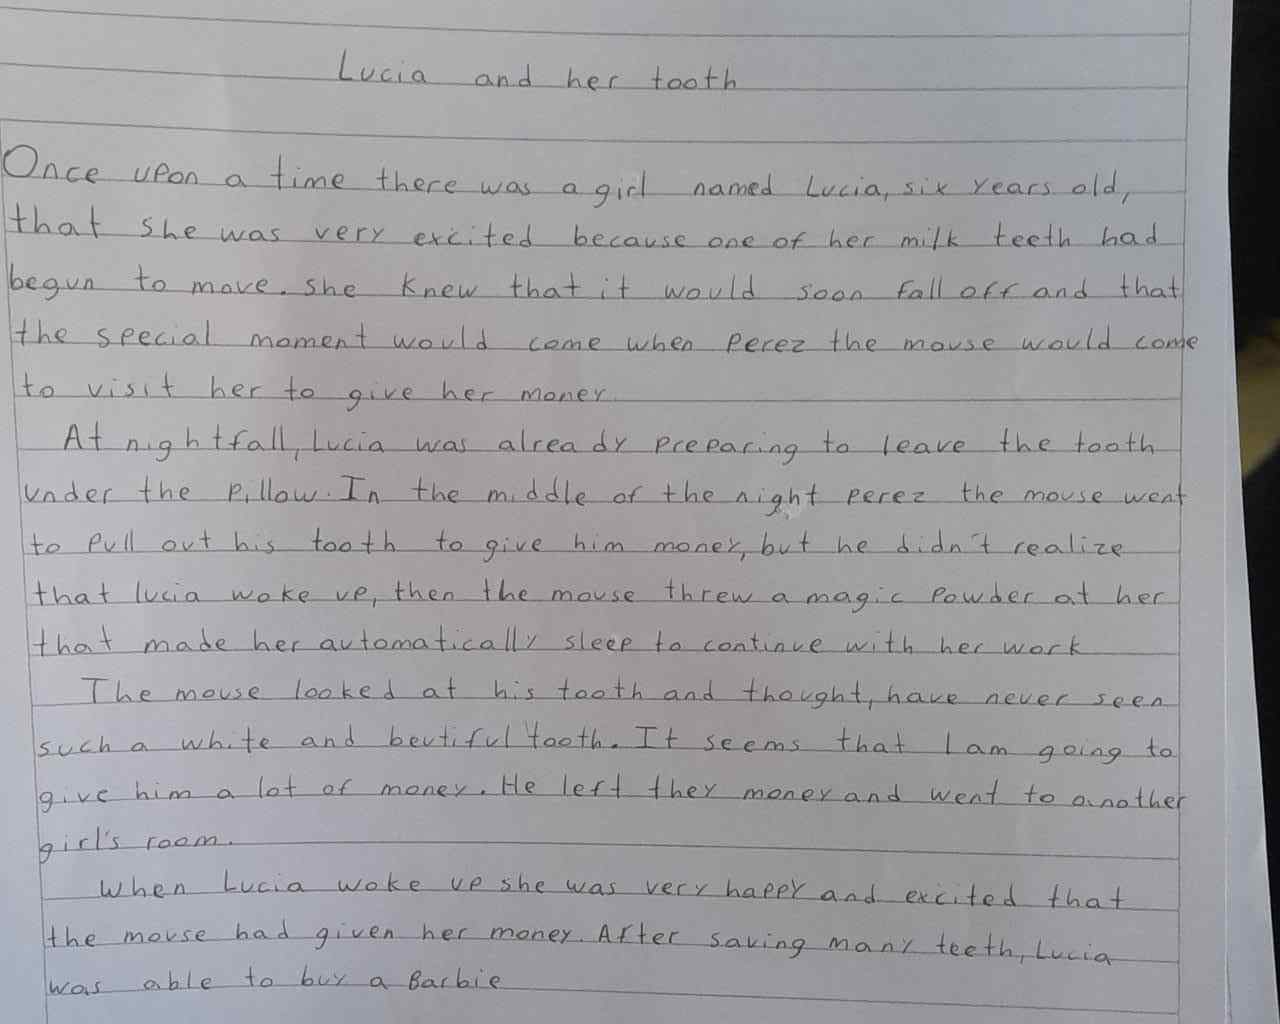 Lucia and her tooth
Once upon a time there was a girl named Lucia, six years old,
that she was very excited because one of her milk teeth had
begun to move. she knew that it would soon fall off and that
the special moment would come when perez the mouse would come
to visit her to give her money.
At nightfall, Lucia was already preparing to leave the tooth
under the pillow. In the middle of the night perez the mouse went
to pull out his tooth to give him money, but he didn't realize
that lucia woke up, then the mouse threw a magic powder at her
that made her automatically sleep to continue with her work
The mouse looked at his tooth and thought, have never seen
such a white and beutiful tooth. It seems that I am going to
give him a lot of money. He left they money and went to another
girl's room.
When Lucia woke up she was very happy and excited that
the mouse had given her money. After saving many teeth, Lucia
was able to buy a Barbie